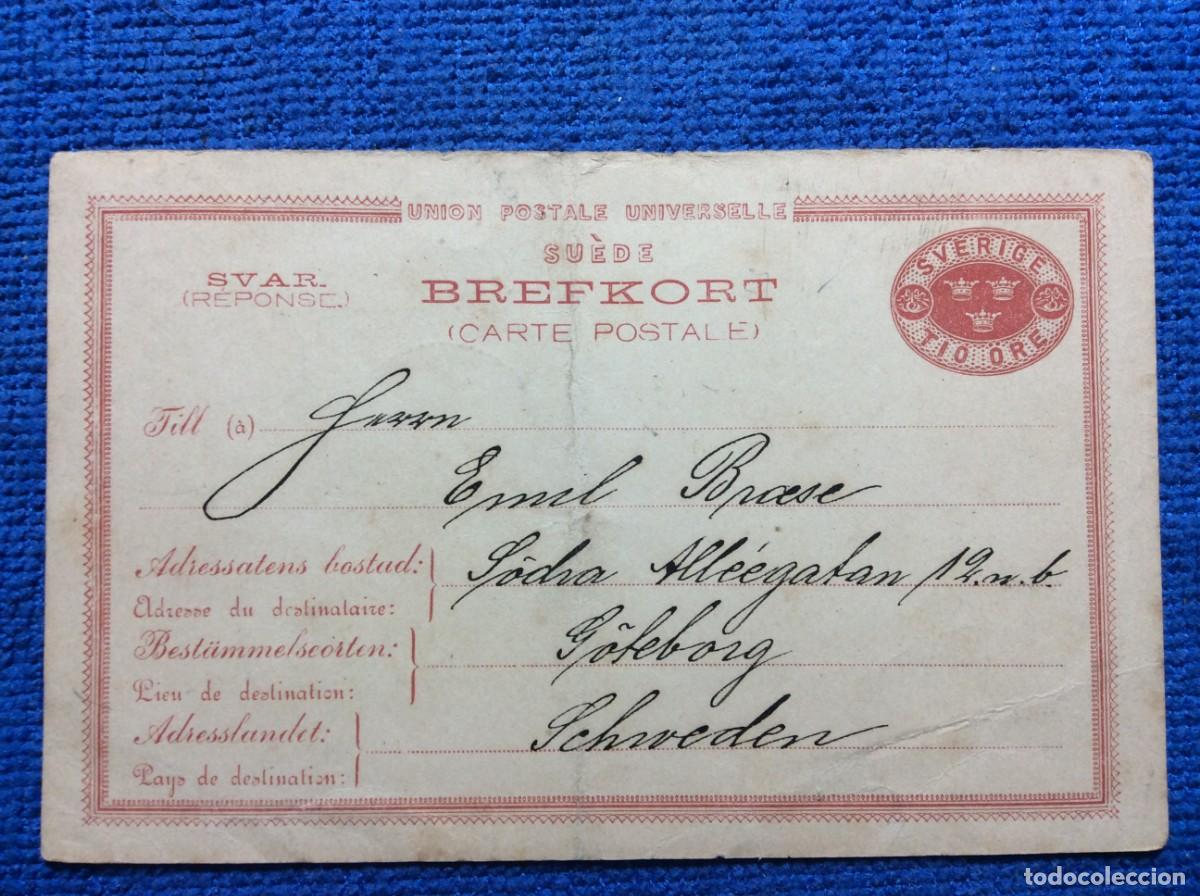 UNION POSTALE UNIVERSELLE
SUÈDE
SVAR.
(RÉPONSE.)
BREFKORT
(CARTE POSTALE)
SVERIGE
TIO ÖRE
Till (à) Herrn
Emil Braese
Adressatens bostad: Södra Alléegatan 12. n. b.
Adresse du destinataire:
Bestämmelseorten: Göteborg
Lieu de destination:
Adresslandet: Schweden
Pays de destination:
todocoleccion